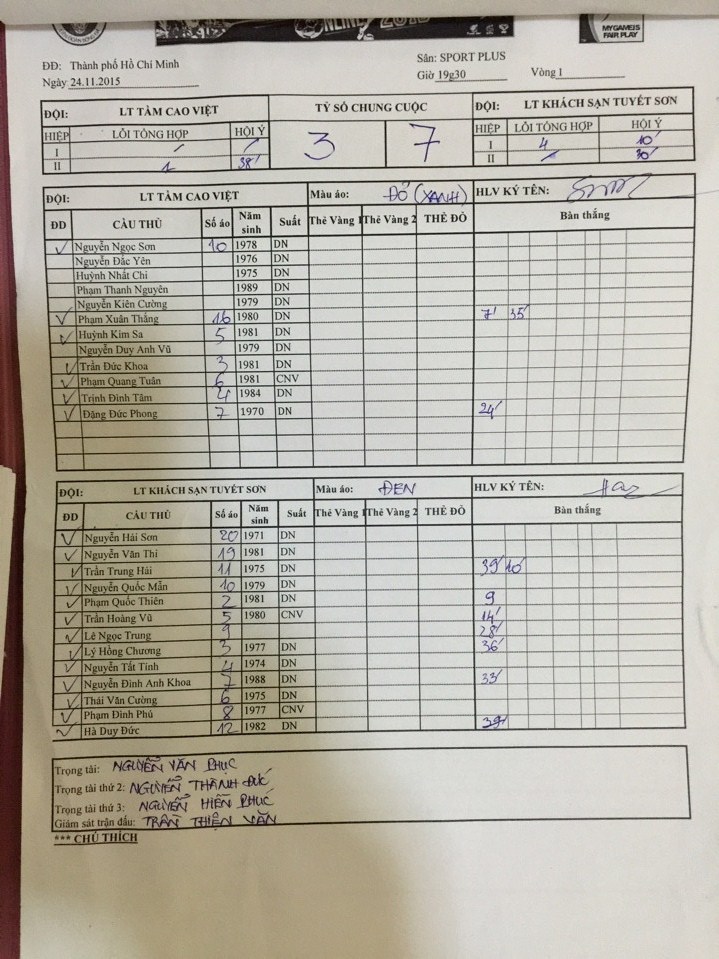 ONLINE 2015
MY GAME IS
FAIR PLAY
ĐĐ: Thành phố Hồ Chí Minh
Sân: SPORT PLUS
Ngày 24.11.2015
Giờ 19g30
Vòng 1
ĐỘI: LT TÂM CAO VIỆT
TỶ SỐ CHUNG CUỘC
ĐỘI: LT KHÁCH SẠN TUYẾT SƠN
HIỆP LỖI TỔNG HỢP HỘI Ý
3 7
HIỆP LỖI TỔNG HỢP HỘI Ý
I / /
I 4 10'
II 1 38'
II 30'
ĐỘI: LT TÂM CAO VIỆT Màu áo: ĐỎ (XANH) HLV KÝ TÊN:
ĐD CẦU THỦ Số áo Năm sinh Suất Thẻ Vàng 1 Thẻ Vàng 2 THẺ ĐỎ Bàn thắng
Nguyễn Ngọc Sơn 10 1978 DN
Nguyễn Đắc Yên 1976 DN
Huỳnh Nhất Chi 1975 DN
Phạm Thanh Nguyên 1989 DN
Nguyễn Kiên Cường 1979 DN
Phạm Xuân Thắng 16 1980 DN 7' 35'
Huỳnh Kim Sa 5 1981 DN
Nguyễn Duy Anh Vũ 1979 DN
Trần Đức Khoa 3 1981 DN
Phạm Quang Tuân 6 1981 CNV
Trịnh Đình Tâm 4 1984 DN
Đặng Đức Phong 7 1970 DN 24'
ĐỘI: LT KHÁCH SẠN TUYẾT SƠN Màu áo: ĐEN HLV KÝ TÊN:
ĐD CẦU THỦ Số áo Năm sinh Suất Thẻ Vàng 1 Thẻ Vàng 2 THẺ ĐỎ Bàn thắng
Nguyễn Hải Sơn 20 1971 DN
Nguyễn Văn Thi 19 1981 DN
Trần Trung Hải 11 1975 DN 39' 10'
Nguyễn Quốc Mẫn 10 1979 DN
Phạm Quốc Thiên 2 1981 DN 9
Trần Hoàng Vũ 5 1980 CNV 14'
Lê Ngọc Trung 9 28'
Lý Hồng Chương 3 1977 DN 36'
Nguyễn Tất Tính 4 1974 DN
Nguyễn Đình Anh Khoa 7 1988 DN 33'
Thái Văn Cường 6 1975 DN
Phạm Đình Phú 8 1977 CNV
Hà Duy Đức 12 1982 DN 39'
Trọng tài: NGUYỄN VĂN PHỤC
Trọng tài thứ 2: NGUYỄN THÀNH ĐỨC
Trọng tài thứ 3: NGUYỄN HIỀN PHÚC
Giám sát trận đấu: TRẦN THIỆN VĂN
*** CHÚ THÍCH